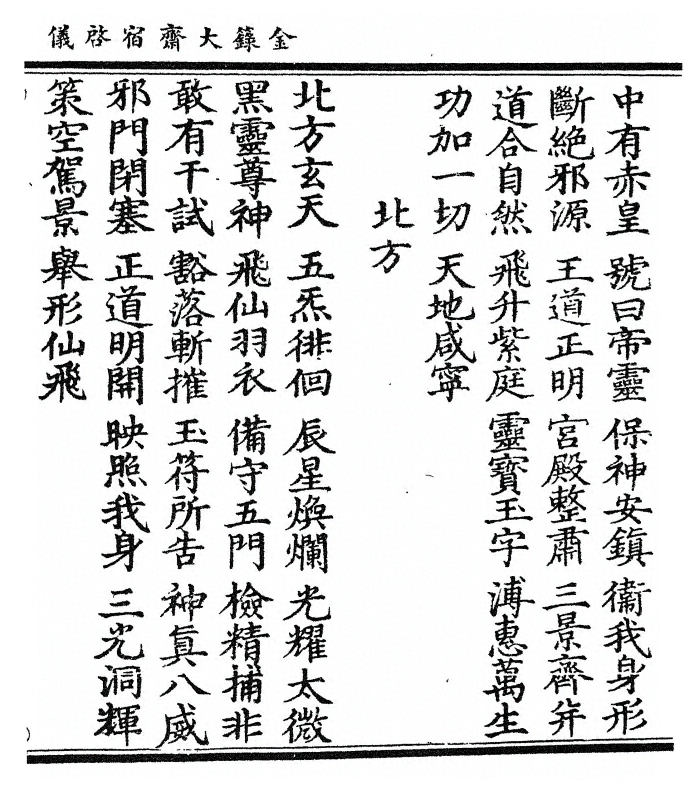 金籙大齋宿啓儀
中有赤皇 號曰帝靈 保神安鎮 衞我身形
斷絶邪源 王道正明 宮殿整肅 三景齊并
道合自然 飛升紫庭 靈寶玉字 溥惠萬生
功加一切 天地咸寧
北方
北方玄天 五炁徘徊 辰星煥爛 光耀太微
黑靈尊神 飛仙羽衣 備守五門 檢精捕非
敢有干試 豁落斬摧 玉符所告 神真八威
邪門閉塞 正道明開 映照我身 三光洞輝
策空駕景 舉形仙飛